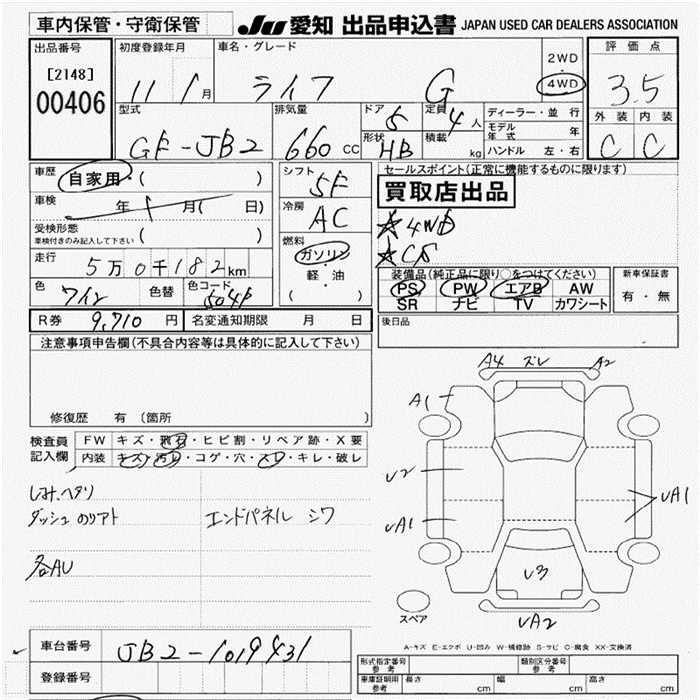 車内保管・守衛保管
JU 愛知 出品申込書 JAPAN USED CAR DEALERS ASSOCIATION
出品番号 初度登録年月 車名・グレード 2WD 評価点
[2148]
00406 11 1月 ライフ G 4WD 3.5
型式 排気量 ドア 5 定員 4人 ディーラー・並行 外装 内装
GF-JB2 660cc 形状 HB 積載 kg モデル年式 年 C C
ハンドル 左・右
車歴 自家用・( ) シフト 5F セールスポイント(正常に機能するものに限ります)
買取店出品
車検 年 1月( 日) 冷房 AC ☆4WD
受検形態 ( )
車検付きのみ記入して下さい
☆CS
燃料 ガソリン・軽・油( )
走行 5万0千182km 装備品(純正品に限り○をつけてください) 新車保証書
PS PW エアB AW 有・無
色 ワイン 色替 色コード 504P SR ナビ TV カワシート
R券 9,710円 名変通知期限 月 日 後日品
注意事項申告欄(不具合内容等は具体的に記入して下さい)
修復歴 有(箇所
検査員記入欄 FW キズ・飛石・ヒビ割・リペア跡・X要
内装 キズ・汚レ・コゲ・穴・スレ・キレ・破レ
しみ、ヘタリ
ダッシュ のりアト エンドパネル シワ
各AU
A4 ズレ A2
A1
U2
UA1 UA1
U3
スペア UA2
A-キズ E-エクボ U-凹み W-補修跡 S-サビ C-腐食 XX-交換済
車台番号 JB2-1019431
登録番号
形式指定番号 参考 類別区分番号 参考
車庫証明用 参考 長さ cm 幅 cm 高さ cm